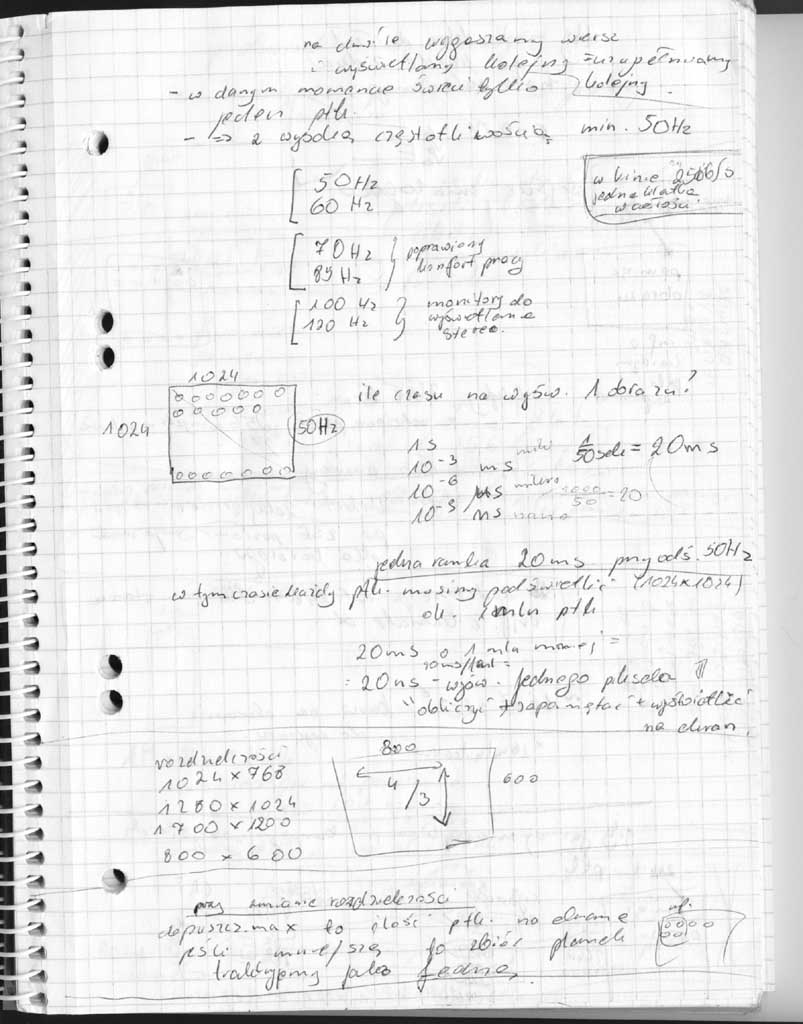 na chwile wygaszamy wiersz
i wyświetlamy kolejny = uzupełniamy
kolejny.
- w danym momencie świeci tylko
jeden ptk.
- => z wysoką częstotliwością min. 50Hz
w kinie 25kl/s
jedna klatka
w całości
50Hz
60 Hz
70Hz
85Hz
poprawiony
komfort pracy
100 Hz
120 Hz
monitory do
wyświetlania
stereo.
1024
1024
50Hz
ile czasu na wyśw. 1 obrazu?
1s
10⁻³ ms mili
1/50 sek = 20ms
10⁻⁶ μs mikro
1000/50 = 20
ns nano
jedna ramka 20ms przy odś. 50Hz
w tym czasie każdy ptk. musimy podświetlić (1024x1024)
ok. 1mln ptk
20ms o 1 mln mniej =
= 20ns - wyśw. jednego piksela
"obliczyć + zapamiętać + wyświetlić
na ekran.
rozdzielczości
1024 x 768
1280 x 1024
1700 x 1200
800 x 600
800
600
4/3
przy zmianie rozdzielczości
dopuszcz. max to ilość ptk. na ekranie
jeśli to zbiór plamek
traktujemy jako jedną.